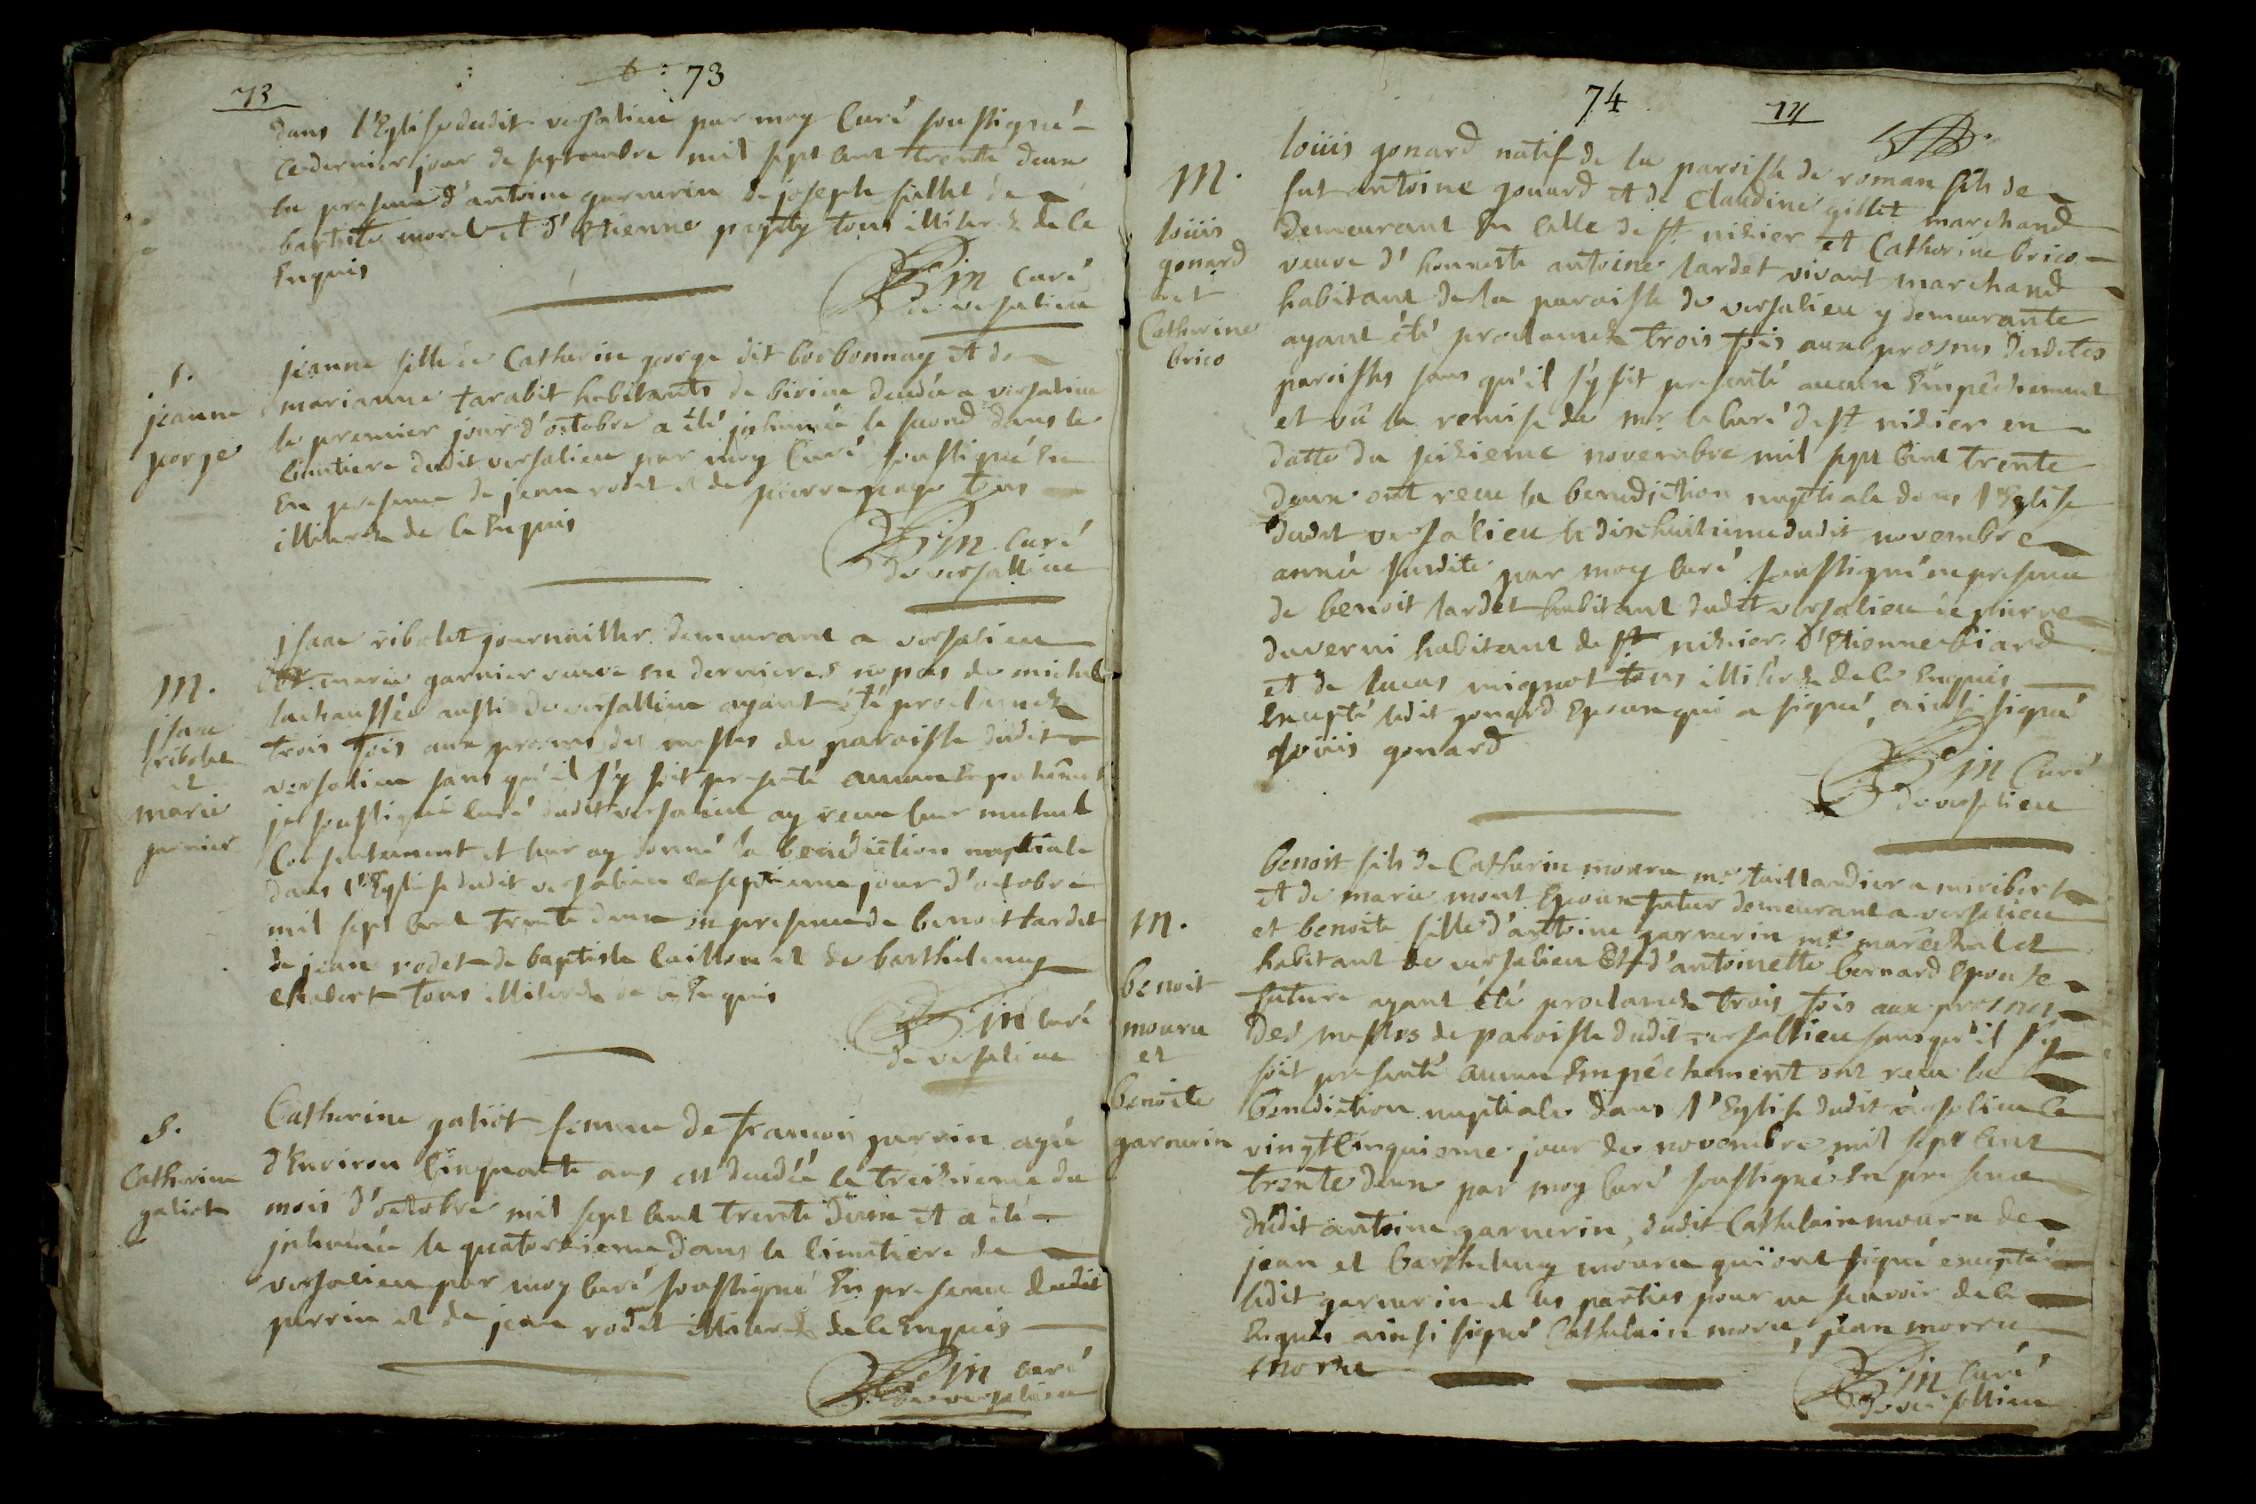 73
73
dans l'Eglise dudit versalieu par moy Curé soussigné
ce dernier jour de septembre mil sept cent trente deux
en presence d'antoine garnerin de joseph fillet de
batiste morel et d'Etienne tous illiterés de ce
Enquis
Curé
de versalieu
s.
jeanne
gorge
jeanne fille de Catherin gorge dit borbonnay et de
marianne tarabit habitants de birieu decedée a versalieu
le premier jour d'octobre a été inhumée le second dans le
cimetiere dudit versalieu par moy Curé soussigné En
En presence de jean rodet et de pierre page tous
illiterés de ce Enquis
Curé
de versallieu
M.
isaac
ribolet
et
marie
garnier
isaac ribolet journaillier demeurant a versalieu
et marie garnier veuve en dernieres nopces de michel
lachaussée aussi de versallieu ayant été proclamés
trois fois aux prosnes des messes de paroisse dudit
versalieu sans qu'il s'y soit presenté aucun Empechemt
je soussigné curé dudit versalieu ay receu leur mutuel
Consentement et leur ay donné la benediction nuptiale
dans l'Eglise dudit versalieu le septieme jour d'octobre
mil sept cent trente deux en presence de benoit tardet
de jean rodet de baptiste caillon et de barthelemy
chabert tous illiterés de ce Enquis
curé
de versalieu
s.
Catherine
galiet
Catherine galiet femme de francois perrin agée
d'Environ cinquante ans est decedée le treizieme du
mois d'octobre mil sept cent trente deux et a été
inhumée le quatorzieme dans le cimetiere de
versalieu par moy curé soussigné En presence dudit
perrin et de jean rodet illiterés de ce Enquis
curé
de versalieu
74
74
M.
loüis
gonard
et
Catherine
brico
loüis gonard natif de la paroisse de roman fils de
fut antoine gonard et de Claudine gillet marchand
demeurant En celle de st nizier et Catherine brico
veuve d'honneste antoine tardet vivant marchand
habitant de la paroisse de versalieu y demeurante
ayant été proclamés trois fois aux prosnes desdites
paroisses sans qu'il s'y soit presenté aucun Empêchement
et vû la remise de mr le curé de st nizier en
datte du seizieme novembre mil sept cent trente
deux ont receu la benediction nuptiale dans l'Eglise
dudit versalieu le dixhuitieme dudit novembre
année susdite par moy curé soussigné en presence
de benoit tardet habitant dudit versalieu de pierre
duverni habitant de st nizier d'Etienne biard
et de lucas mignot tous illiterés de ce Enquis
Excepté ledit gonard Epoux qui a signé, ainsi signé
loüis gonard
Curé
de versalieu
M.
benoit
mouru
et
benoite
garnerin
benoit fils de Catherin mouru me taillandier a miribel
et de marie mont Epoux futur demeurant a versalieu
et benoite fille d'antoine garnerin me maréchal et
habitant de versalieu Et d'antoinette bernard Epouse
future ayant été proclamés trois fois aux prosnes
des messes de paroisse dudit versallieu sans qu'il s'y
soit presenté aucun Empêchement ont receu la
benediction nuptiale dans l'Eglise dudit versalieu le
vingt Cinquieme jour de novembre mil sept cent
trente deux par moy curé soussigné En presence
dudit antoine garnerin, dudit Cathelain mouru de
jean et barthelemy mouru qui ont signé excepté
ledit garnerin et les parties pour ne scavoir de ce
Enquis ainsi signé Cathelain moru, jean morru
morru
Curé
de versallieu